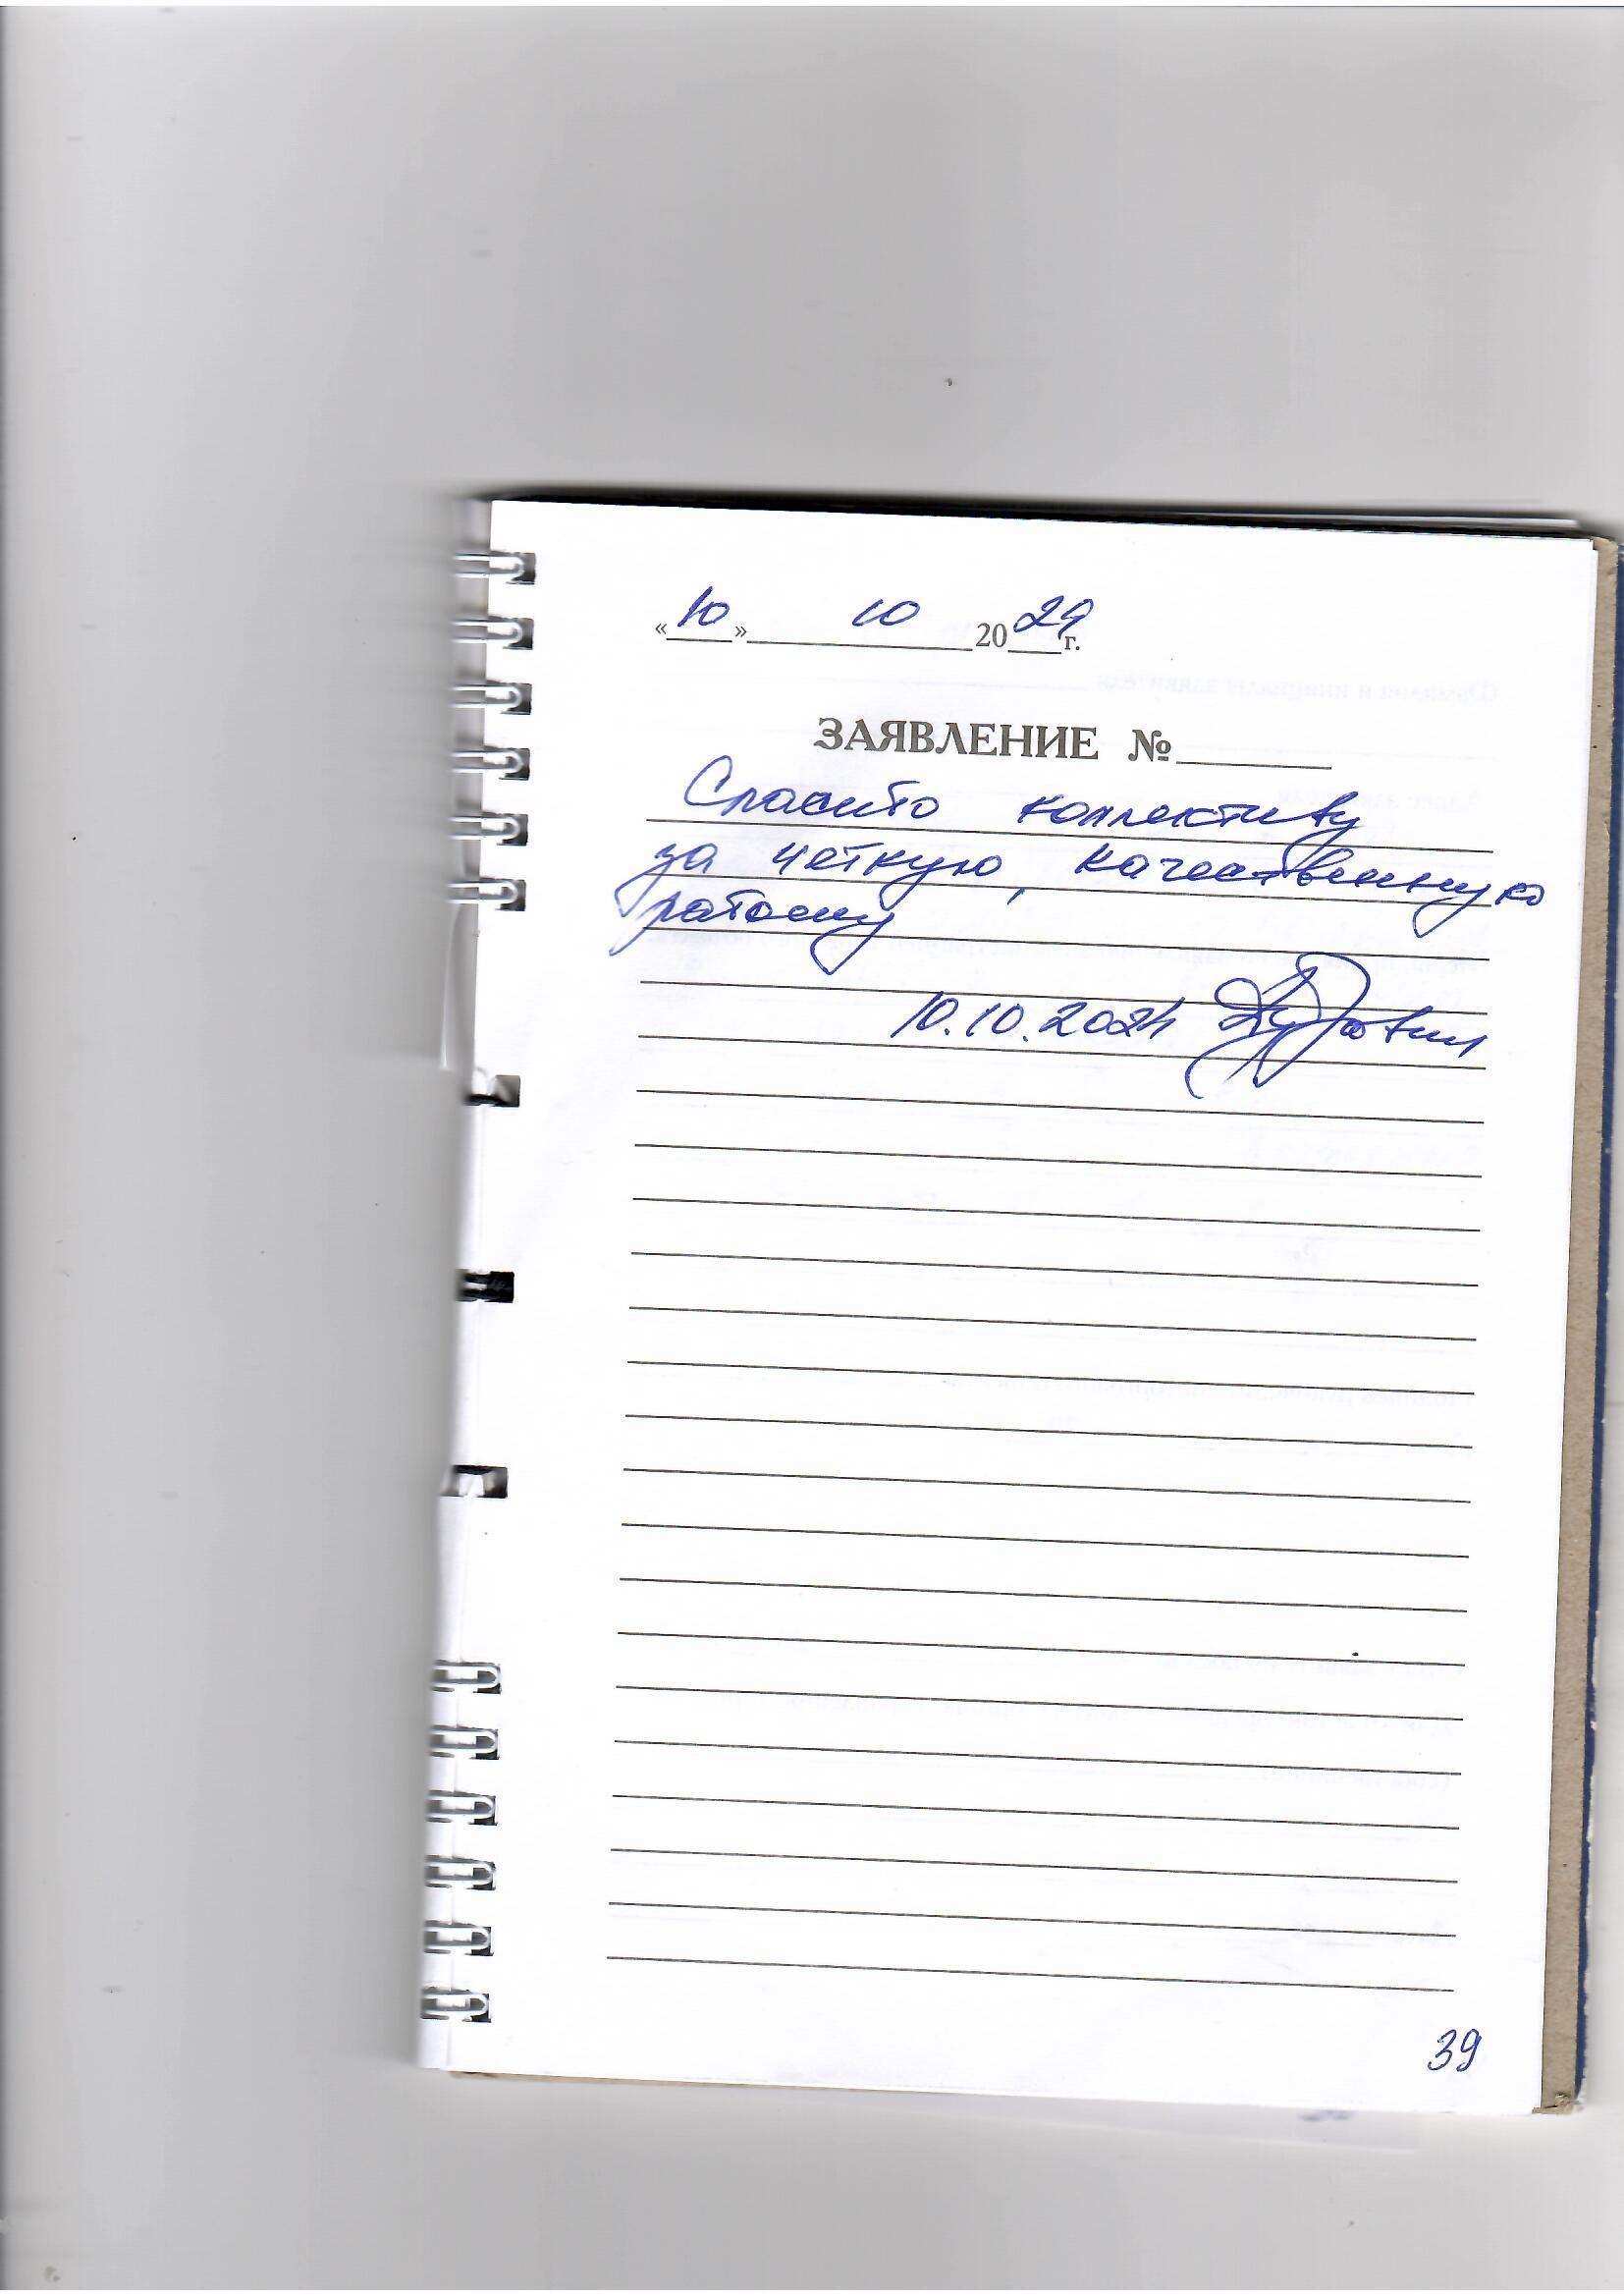 «10» 10 2024 г.
ЗАЯВЛЕНИЕ №
Спасибо коллективу
за четкую, качественную
работу
10.10.2024
39